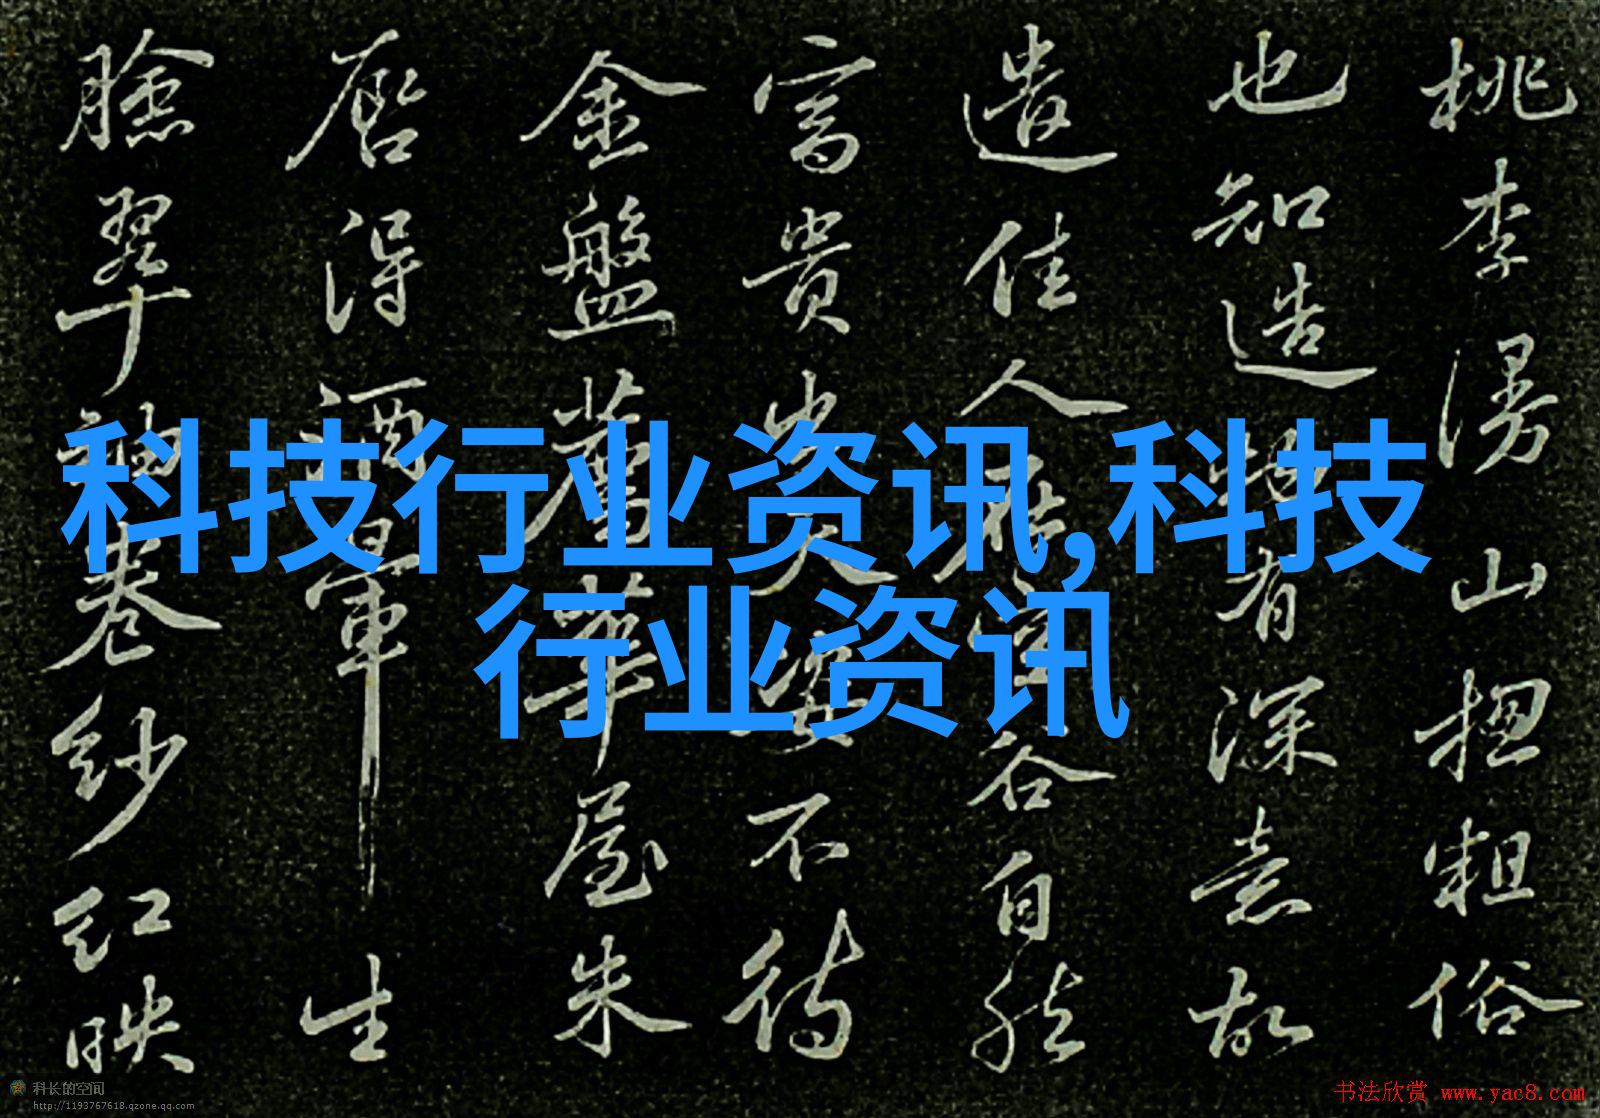 科技行业资讯,科技
行业资讯
桃李漫山揔粗俗
也知造物有深意故
遣佳人在空谷自然
富貴出天姿不待
金盤薦華屋朱
唇得酒暈生
臉翠袖卷紗紅映
科长的空间
http://1193767618.qzone.qq.com
书法欣赏 www.yac8.com